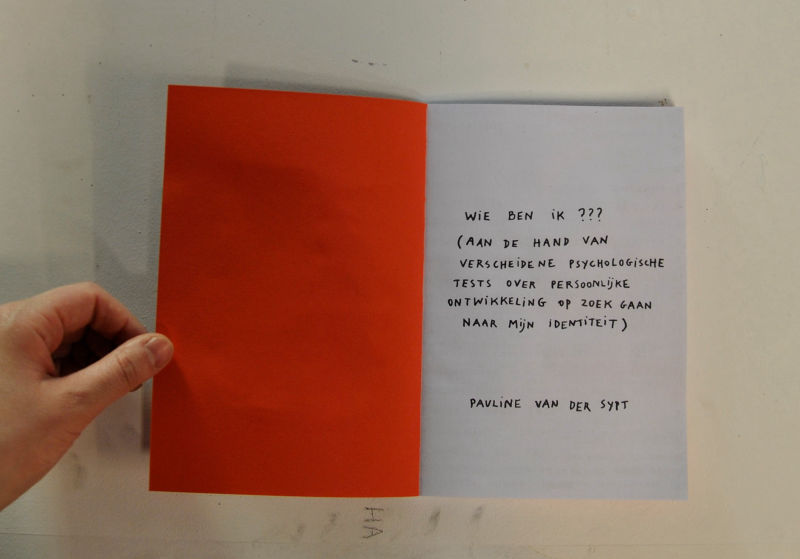 WIE BEN IK ???
(AAN DE HAND VAN
VERSCHEIDENE PSYCHOLOGISCHE
TESTS OVER PERSOONLIJKE
ONTWIKKELING OP ZOEK GAAN
NAAR MIJN IDENTITEIT)
PAULINE VAN DER SYPT
HA